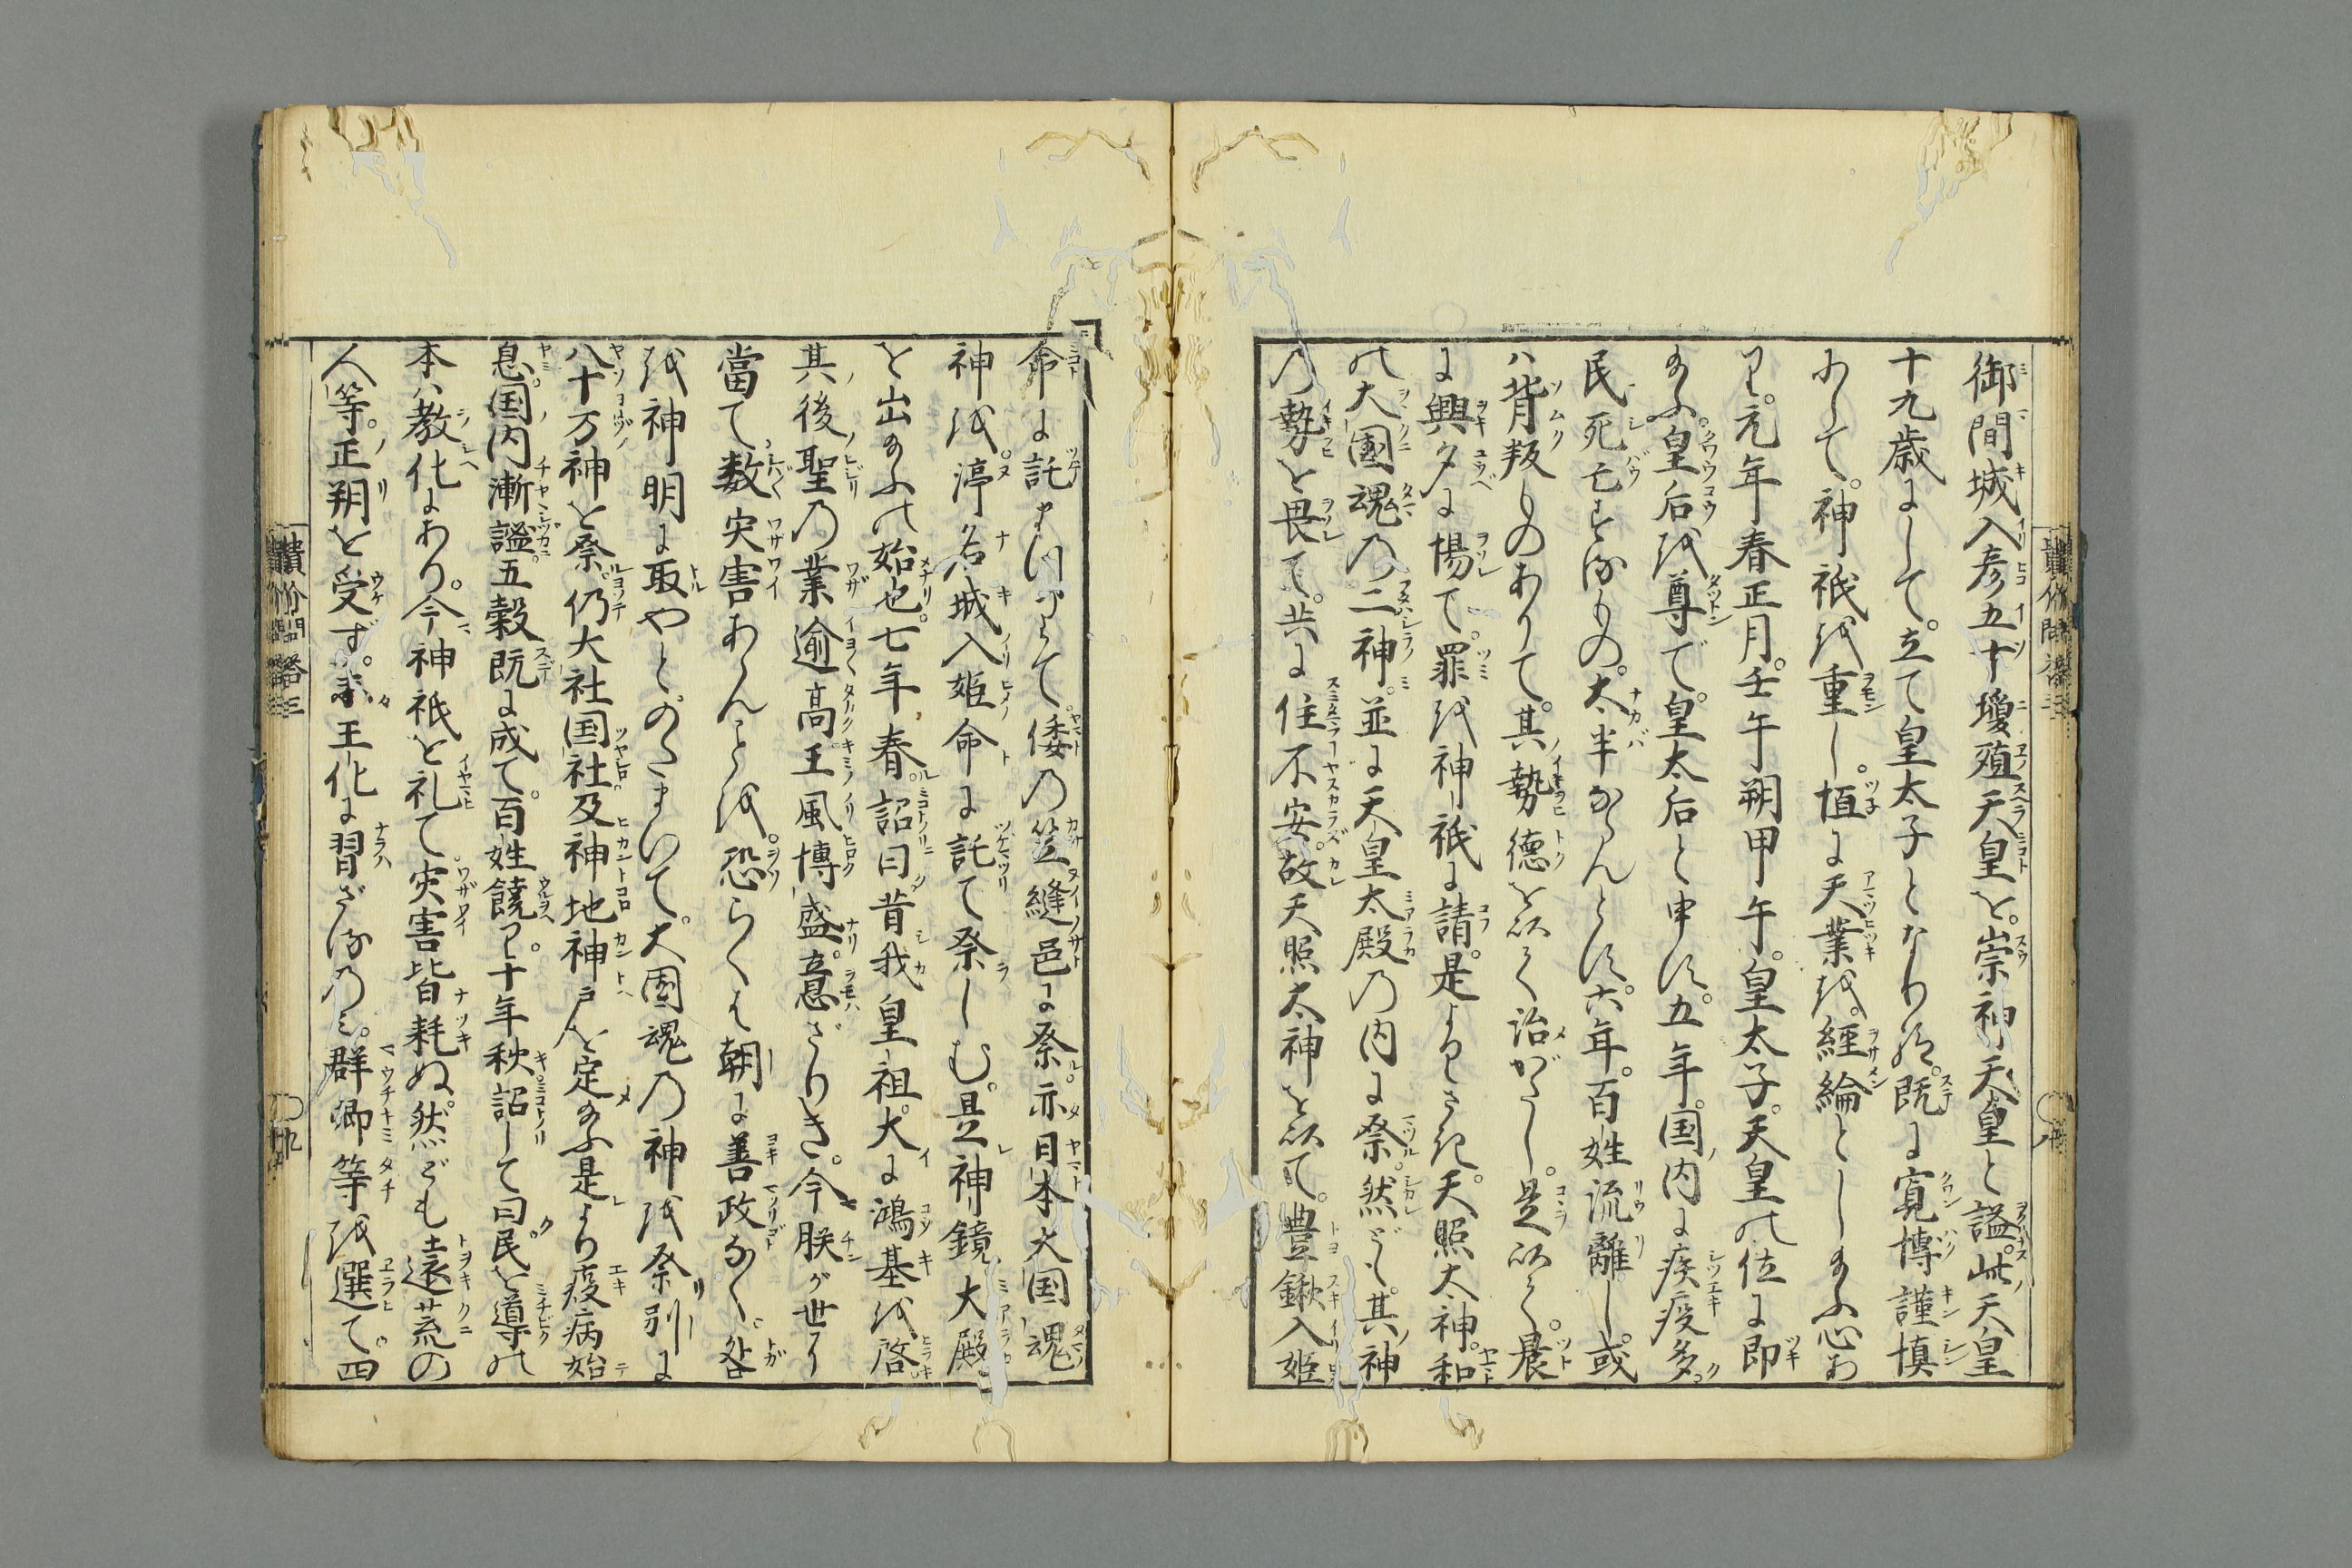 御間城入彦五十瓊殖天皇を。崇神天皇と謚。此天皇
十九歳にして。立て皇太子となり給。既に寛博謹慎
にして。神祇を重し。恒に天業を。経綸としまふ心お
り。元年春正月。壬午朔甲午。皇太子。天皇の位に即
給ふ。皇后を尊で。皇太后と申す。五年。国内に疾疫多。
民死亡するもの。太半ならんとす。六年。百姓流離し。或
は背叛ものありて。其勢徳を以て治がたし。是以て。晨
に興夕に惕て。罪を神祇に請。是よりさき。天照太神。和
の大國魂の二神。並に天皇太殿の内に祭。然ども。其神
の勢を畏て。共に住不安。故天照太神を以て。豊鍬入姫
命に託まつりて。倭の笠縫邑に祭。亦日本大国魂
神を。渟名城入姫命に託て祭しむ。是神鏡大殿
を出給ふの始也。七年春。詔曰昔我皇祖。大に鴻基を啓。
其後聖の業逾高。王風博盛。意ざりき。今朕が世に
當て。数災害あらんことを。恐らくは朝に善政なく。咎
を神明に取やと。のたまいて。大国魂の神を祭。別に
八十万神を祭。仍大社国社。及神地神戸を定給ふ。是より疫病始
息。国内漸謐。五穀既に成て。百姓饒り。十年秋。詔して曰。民を導の
本は教化にあり。今神祇を礼て。災害皆耗ぬ。然ども遠荒の
人等。正朔を受ず。未王化に習ざるのミ。群卿等を選て。四